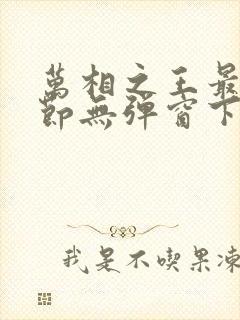 萬相之王最
節無彈窗下
我是不喫果凍